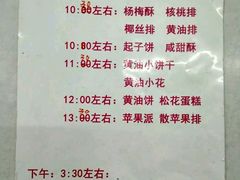 10:00左右: 杨梅酥 核桃排
椰丝排 黄油排
10:80左右: 起子饼 咸甜酥
11:00左右: 黄油小饼干
黄油小花
12:00左右: 黄油饼 松花蛋糕
13:00左右: 苹果派 散苹果排
下午: 3:30左右: